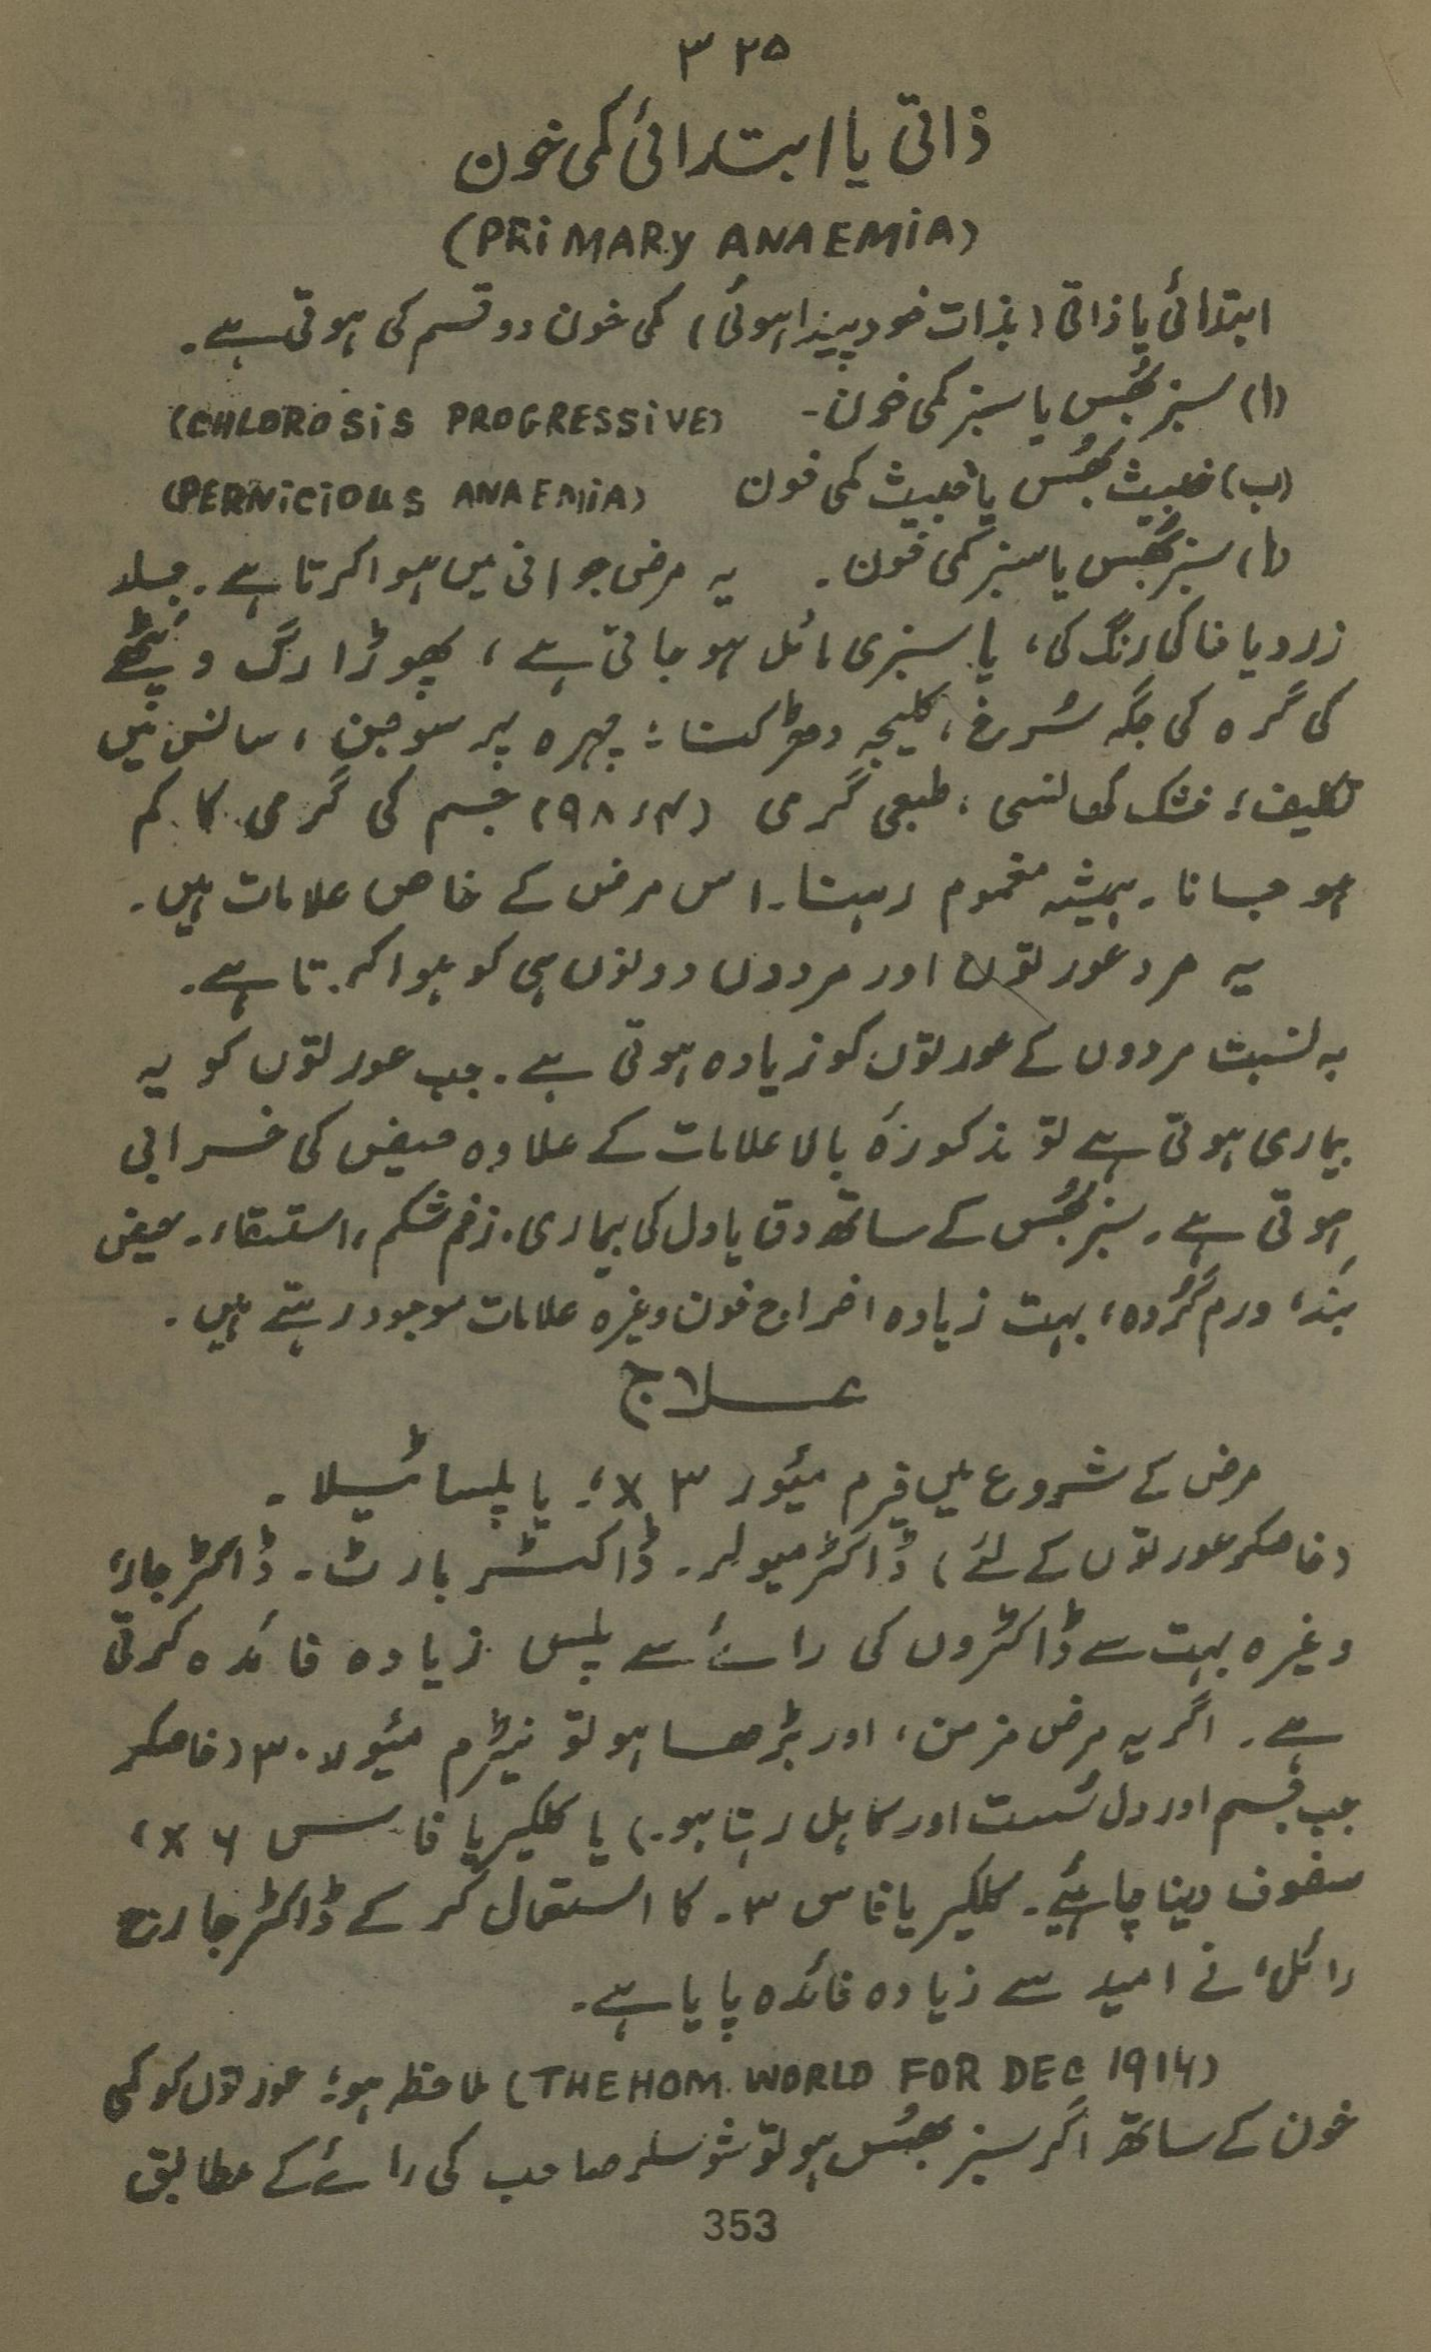 ۳۲۵
ذاتی یا ابتدائی کمی خون
(PRiMARy ANAEMiA)
ابتدائی یا ذاتی (بذات خود پیدا ہوئی) کمی خون دو قسم کی ہوتی ہے۔
(ا) سبز بھُس یا سبز کمی خون۔ (CHLOROSiS PROGRESSiVE)
(ب) خبیث بھُس یا خبیث کمی خون (PERNiCiOUS ANAEMiA)
(ا) سبز بھُس یا سبز کمی خون۔ یہ مرض جوانی میں ہوا کرتا ہے۔ جلد
زرد یا خاکی رنگ کی، یا سبزی مائل ہو جاتی ہے، پھوڑا رگ و پٹھے
کی گرہ کی جگہ سُرخ، کلیجہ دھڑکنا؛ چہرہ پر سوجن، سانس میں
تکلیف؛ خشک کھانسی، طبعی گرمی (۹۸٫۴) جسم کی گرمی کا کم
ہو جانا۔ ہمیشہ مغموم رہنا۔ اس مرض کے خاص علامات ہیں۔
یہ مرد عورتوں اور مردوں دونوں ہی کو ہوا کرتا ہے۔
بہ نسبت مردوں کے عورتوں کو زیادہ ہوتی ہے۔ جب عورتوں کو یہ
بیماری ہوتی ہے تو مذکورہ بالا علامات کے علاوہ حیض کی خرابی
ہوتی ہے۔ سبز بھُس کے ساتھ دق یا دل کی بیماری۔ زخم شکم، استسقاء۔ حیض
بند، ورم گُردہ، بہت زیادہ اخراج خون وغیرہ علامات موجود رہتے ہیں۔
علاج
مرض کے شروع میں فیرم میئور ۳ x؛ یا پلسا ٹیلا۔
(خاصکر عورتوں کے لئے) ڈاکٹر میولر۔ ڈاکٹر بارٹ۔ ڈاکٹر جار،
وغیرہ بہت سے ڈاکٹروں کی رائے سے پلس زیادہ فائدہ کرتی
ہے۔ اگر یہ مرض مزمن، اور بڑھا ہو تو نیٹرم میئور ۳۰ (خاصکر
جب جسم اور دل سُست اور کاہل رہتا ہو۔) یا کلکیریا فاس ۶ x،
سفوف دینا چاہئیے۔ کلکیریا فاس ۳۔ کا استعمال کر کے ڈاکٹر جارج
رائل، نے امید سے زیادہ فائدہ پایا ہے۔
(THE HOM. WORLD FOR DEC 1914) ملاحظہ ہو؛ عورتوں کو کمی
خون کے ساتھ اگر سبز بھُس ہو تو شوسلر صاحب کی رائے کے مطابق
353